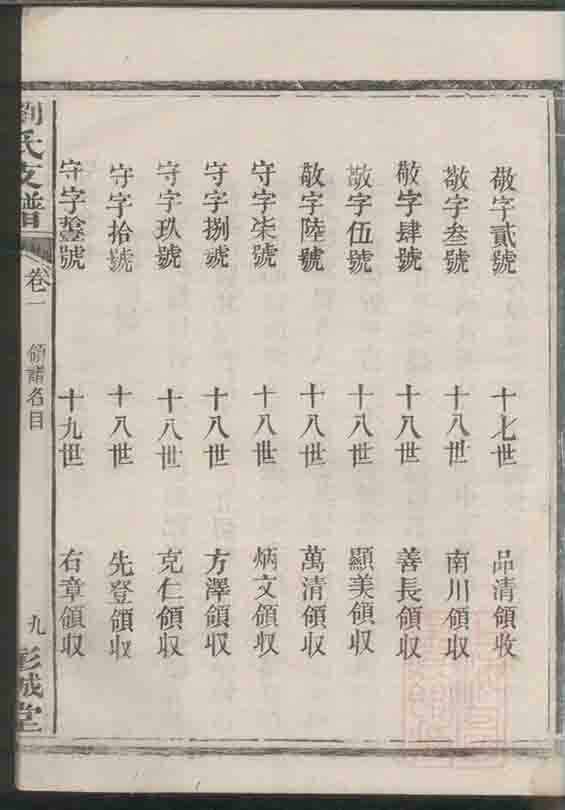 敬字貳號 十七世 品清領收
敬字叁號 十八世 南川領収
敬字肆號 十八世 善長領収
敬字伍號 十八世 顯美領収
敬字陸號 十八世 萬清領収
守字柒號 十八世 炳文領収
守字捌號 十八世 方澤領収
守字玖號 十八世 克仁領収
守字拾號 十八世 先登領収
守字號 十九世 右章領収
劉氏支譜 卷一 領譜名目 九 彭城堂